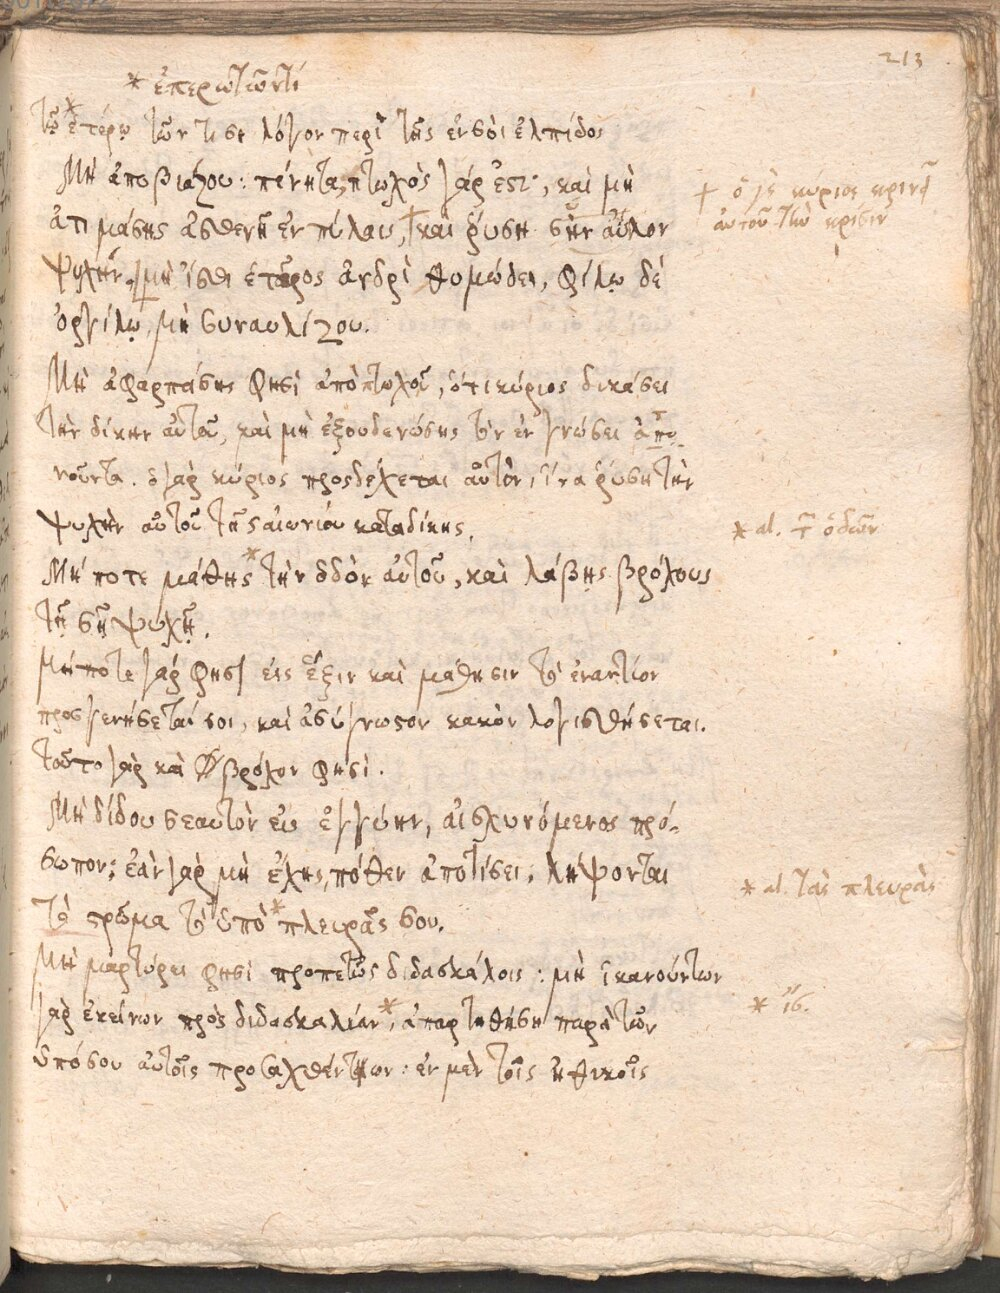 213
* ἐπερωτῶντί
τῷ * ἑτέρῳ τῶν τι σε λόγον περὶ τῆς ἐν σοὶ ἐλπίδος
Μὴ ἀποβιάζου· πένητα, πτωχὸς γάρ ἐστι, καὶ μὴ
ἀτιμάσης ἀσθενῆ ἐν πύλαις, † καὶ ῥύση σὴν ἄσυλον
ψυχήν. μὴ ἴσθι ἑταῖρος ἀνδρὶ θυμώδει, φίλῳ δὲ
ὀργίλῳ, μὴ συναυλίζου.
† ὁ γὰρ κύριος κρινεῖ
αὐτοῦ τὴν κρίσιν
Μὴ ἀφαρπάσης φησὶ ἀπὸ πτωχοῦ, ὅτι κύριος δικάσει
τὴν δίκην αὐτοῦ, καὶ μὴ ἐξουδενώσης τὸν ἐν γνώσει ἀπο
νοῦντα. ὁ γὰρ κύριος προσδέχεται αὐτὸν, ἵνα ῥύση τὴν
ψυχὴν αὐτοῦ τῆς αἰωνίου καταδίκης.
* al. τῶν ὁδῶν
Μή ποτε μάθης * τὴν ὁδὸν αὐτοῦ, καὶ λάβης βρόχους
τῇ σῇ ψυχῇ.
μήποτε γάρ φησι εἰς ἕξιν καὶ μάθησιν τὸ ἐναντίον
προσγενήσεταί σοι, καὶ ἀσύγνωστον κακὸν λογισθήσεται.
τοῦτο γὰρ καὶ βρόχον φησί.
Μὴ δίδου σεαυτὸν εἰς ἐγγύην, αἰσχυνόμενος πρό-
σωπον; ἐὰν γὰρ μὴ ἔχης, πόθεν ἀποτίσει, λήψονται
τὸ στρῶμα τὸ ὑπὸ * πλευρᾶς σου.
* al. τὰς πλευρὰς
Μὴ μαρτύρει φησὶ προπετῶς διδασκάλοις· μὴ ἱκανούντων
γὰρ ἐκείνων πρὸς διδασκαλίαν *, ἀπαρτηθήση παρὰ τῶν
ὑπό σου αὐτοῖς προσαχθέντων· ἐν μὲν τοῖς ἠθικοῖς